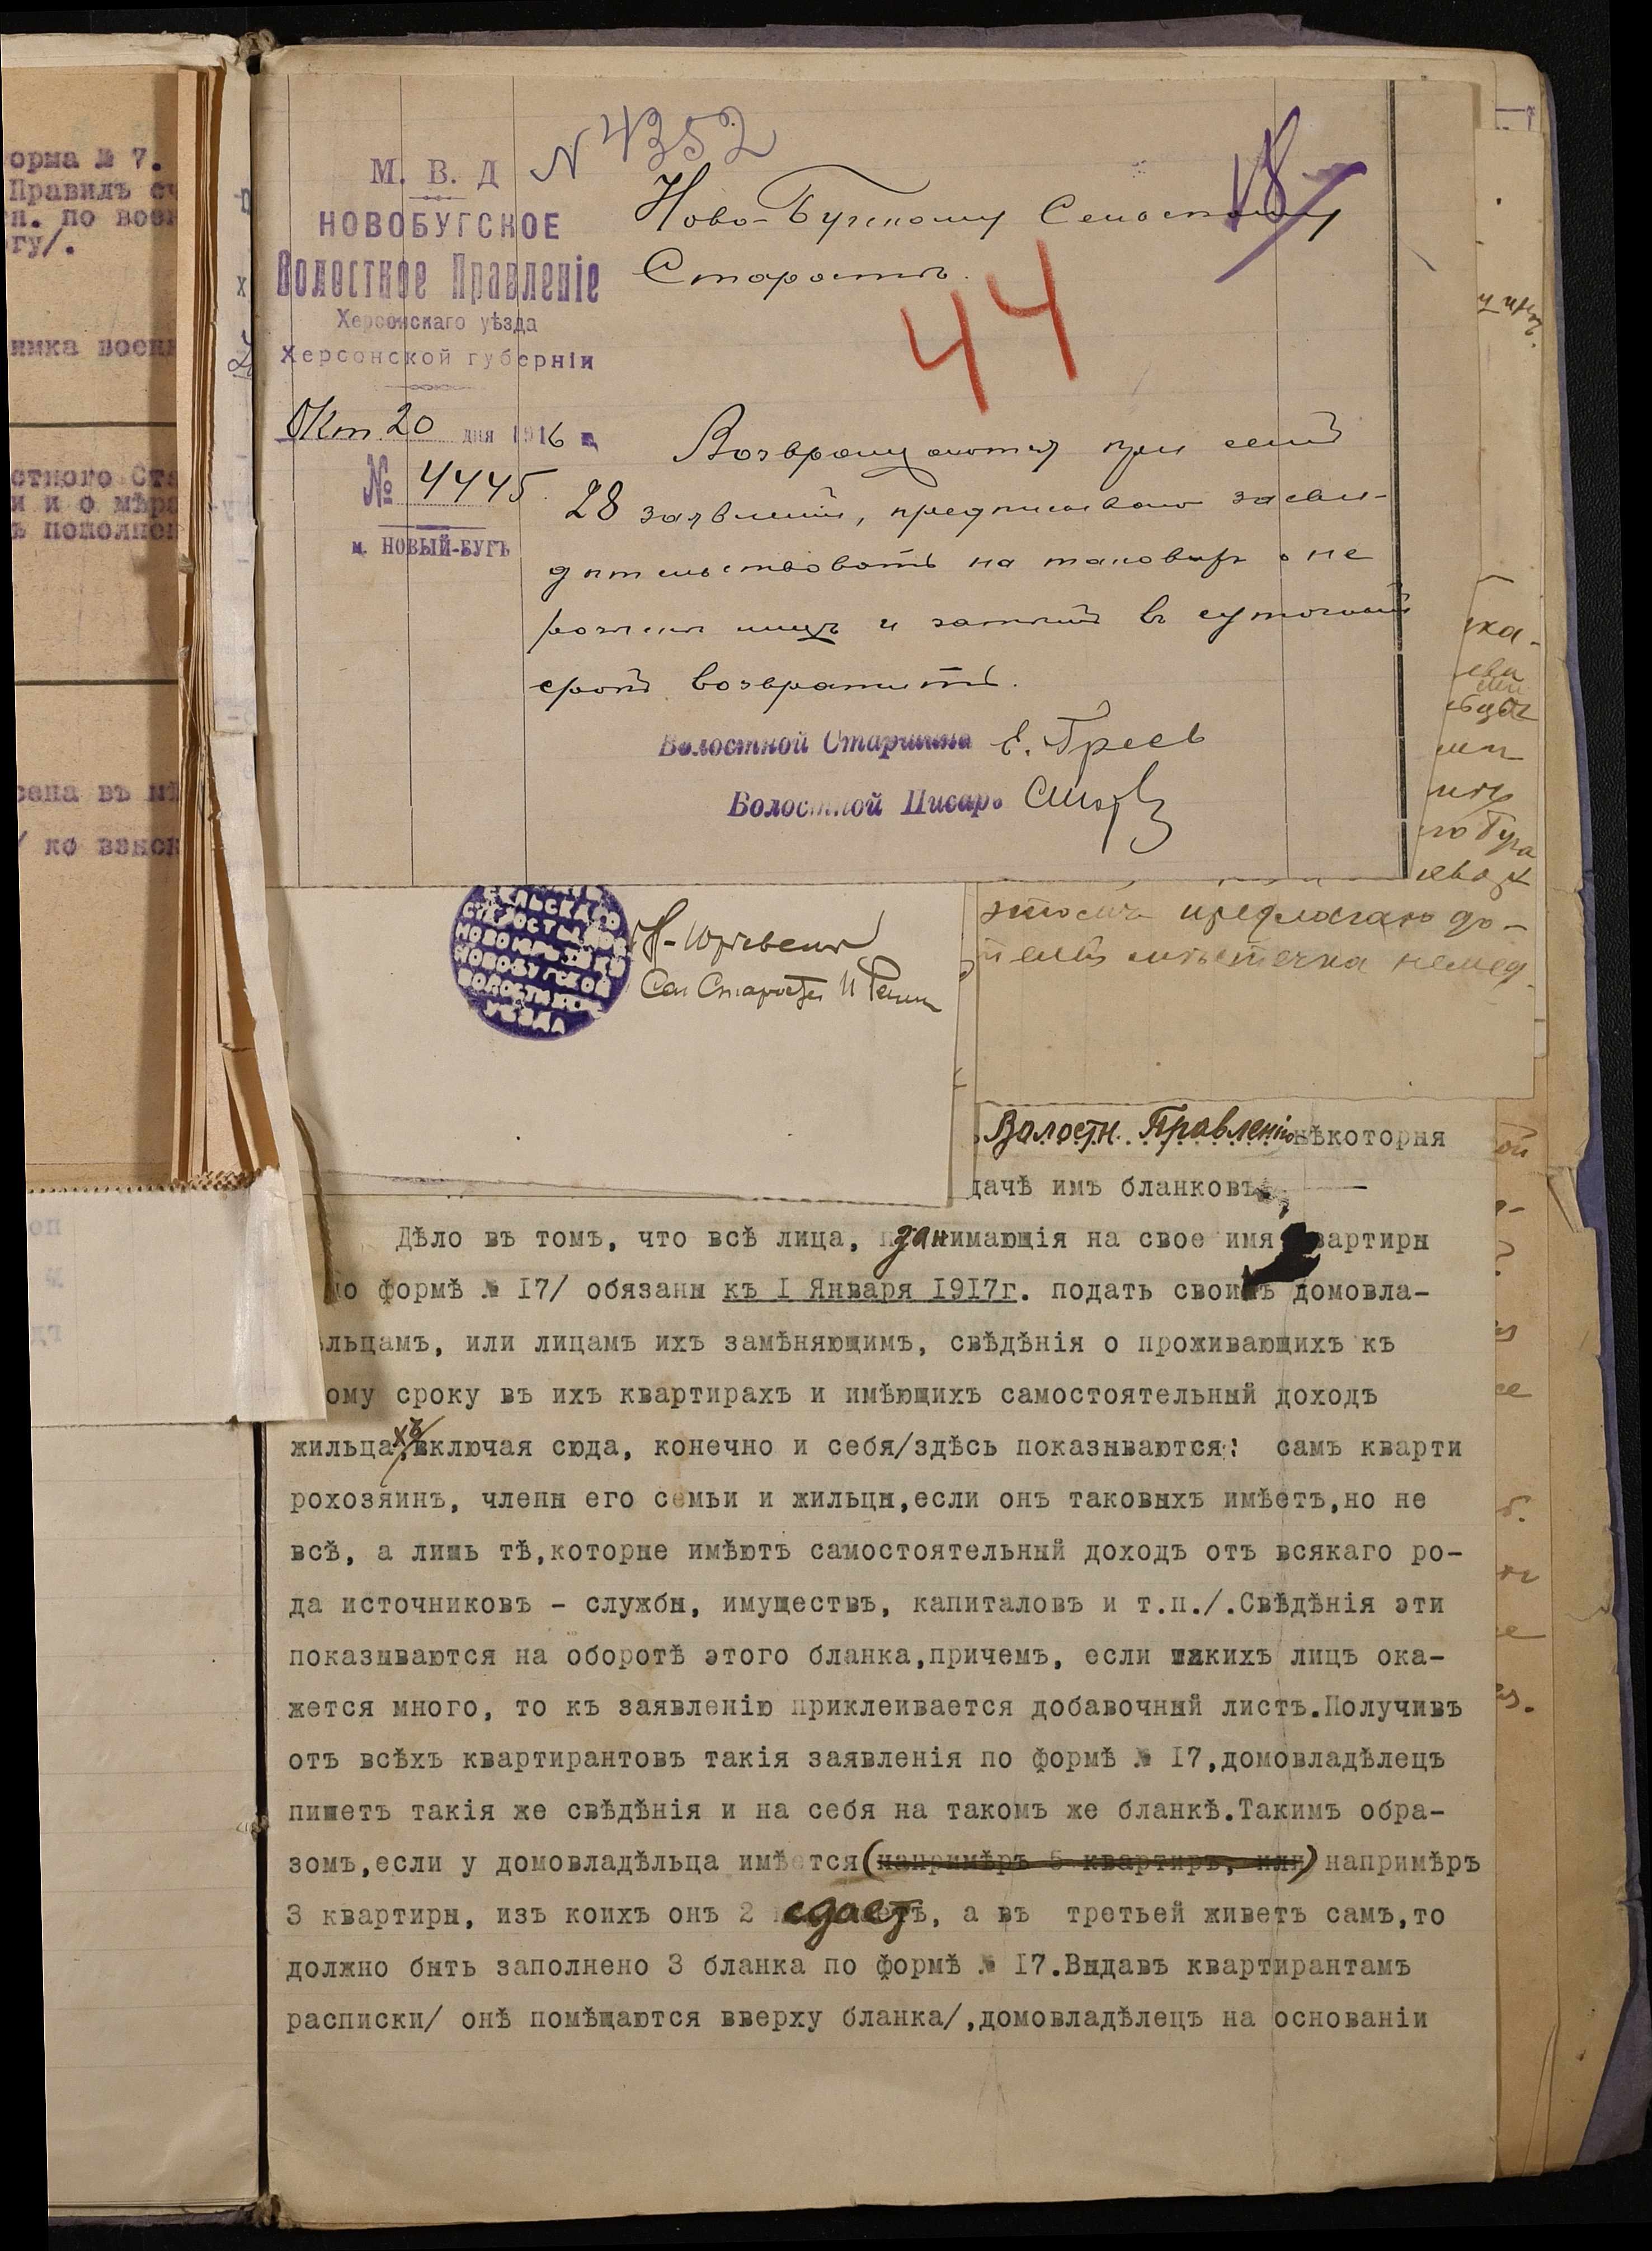 орма № 7.
Правилъ сч
н. по воен
огу/.
имка военн
остного Ста
и и о мѣра
ъ пополнен
сена въ
ко взнск
N 4352
18
М. В. Д
НОВОБУГСКОЕ
Волостное Правленіе
Херсонскаго уѣзда
Херсонской губерніи
Окт. 20 дня 1916 г.
№ 4445
м. НОВЫЙ-БУГЪ
Ново-Бугскому Сельскому
Старостѣ.
44
Возвращаются при семъ
28 заявленій, предписываю засви-
дѣтельствовать на таковыхъ о не
лицъ и затѣмъ въ суточный
срокъ возвратить.
Волостной Старшина Е. Греев
Волостной Писарь
СЕЛЬСКАГО
СТАРОСТЫ
НОВОБУГСКОЙ
ВОЛОСТИ
УѢЗДА
Сел Староста И
этомъ предлагаю до-
немед
Волостн. Правленію нѣкоторыя
дачѣ имъ бланковъ.
Дѣло въ томъ, что всѣ лица, занимающія на свое имя квартиры
по формѣ № 17/ обязаны къ 1 Января 1917г. подать своимъ домовла-
ѣльцамъ, или лицамъ ихъ замѣняющимъ, свѣдѣнія о проживающихъ къ
ому сроку въ ихъ квартирахъ и имѣющихъ самостоятельный доходъ
жильцахъ, включая сюда, конечно и себя/здѣсь показываются: самъ кварти
рохозяинъ, члены его семьи и жильцы,если онъ таковыхъ имѣетъ,но не
всѣ, а лишь тѣ,которые имѣютъ самостоятельный доходъ отъ всякаго ро-
да источниковъ - службы, имуществъ, капиталовъ и т.п./.Свѣдѣнія эти
показываются на оборотѣ этого бланка,причемъ, если такихъ лицъ ока-
жется много, то къ заявленію приклеивается добавочный листъ.Получивъ
отъ всѣхъ квартирантовъ такія заявленія по формѣ № 17,домовладѣлецъ
пишетъ такія же свѣдѣнія и на себя на такомъ же бланкѣ.Такимъ обра-
зомъ,если у домовладѣльца имѣется (напримѣръ 5 квартиръ, или) напримѣръ
3 квартиры, изъ коихъ онъ 2 сдаетъ, а въ третьей живетъ самъ,то
должно быть заполнено 3 бланка по формѣ № 17.Выдавъ квартирантамъ
расписки/ онѣ помѣщаются вверху бланка/,домовладѣлецъ на основаніи